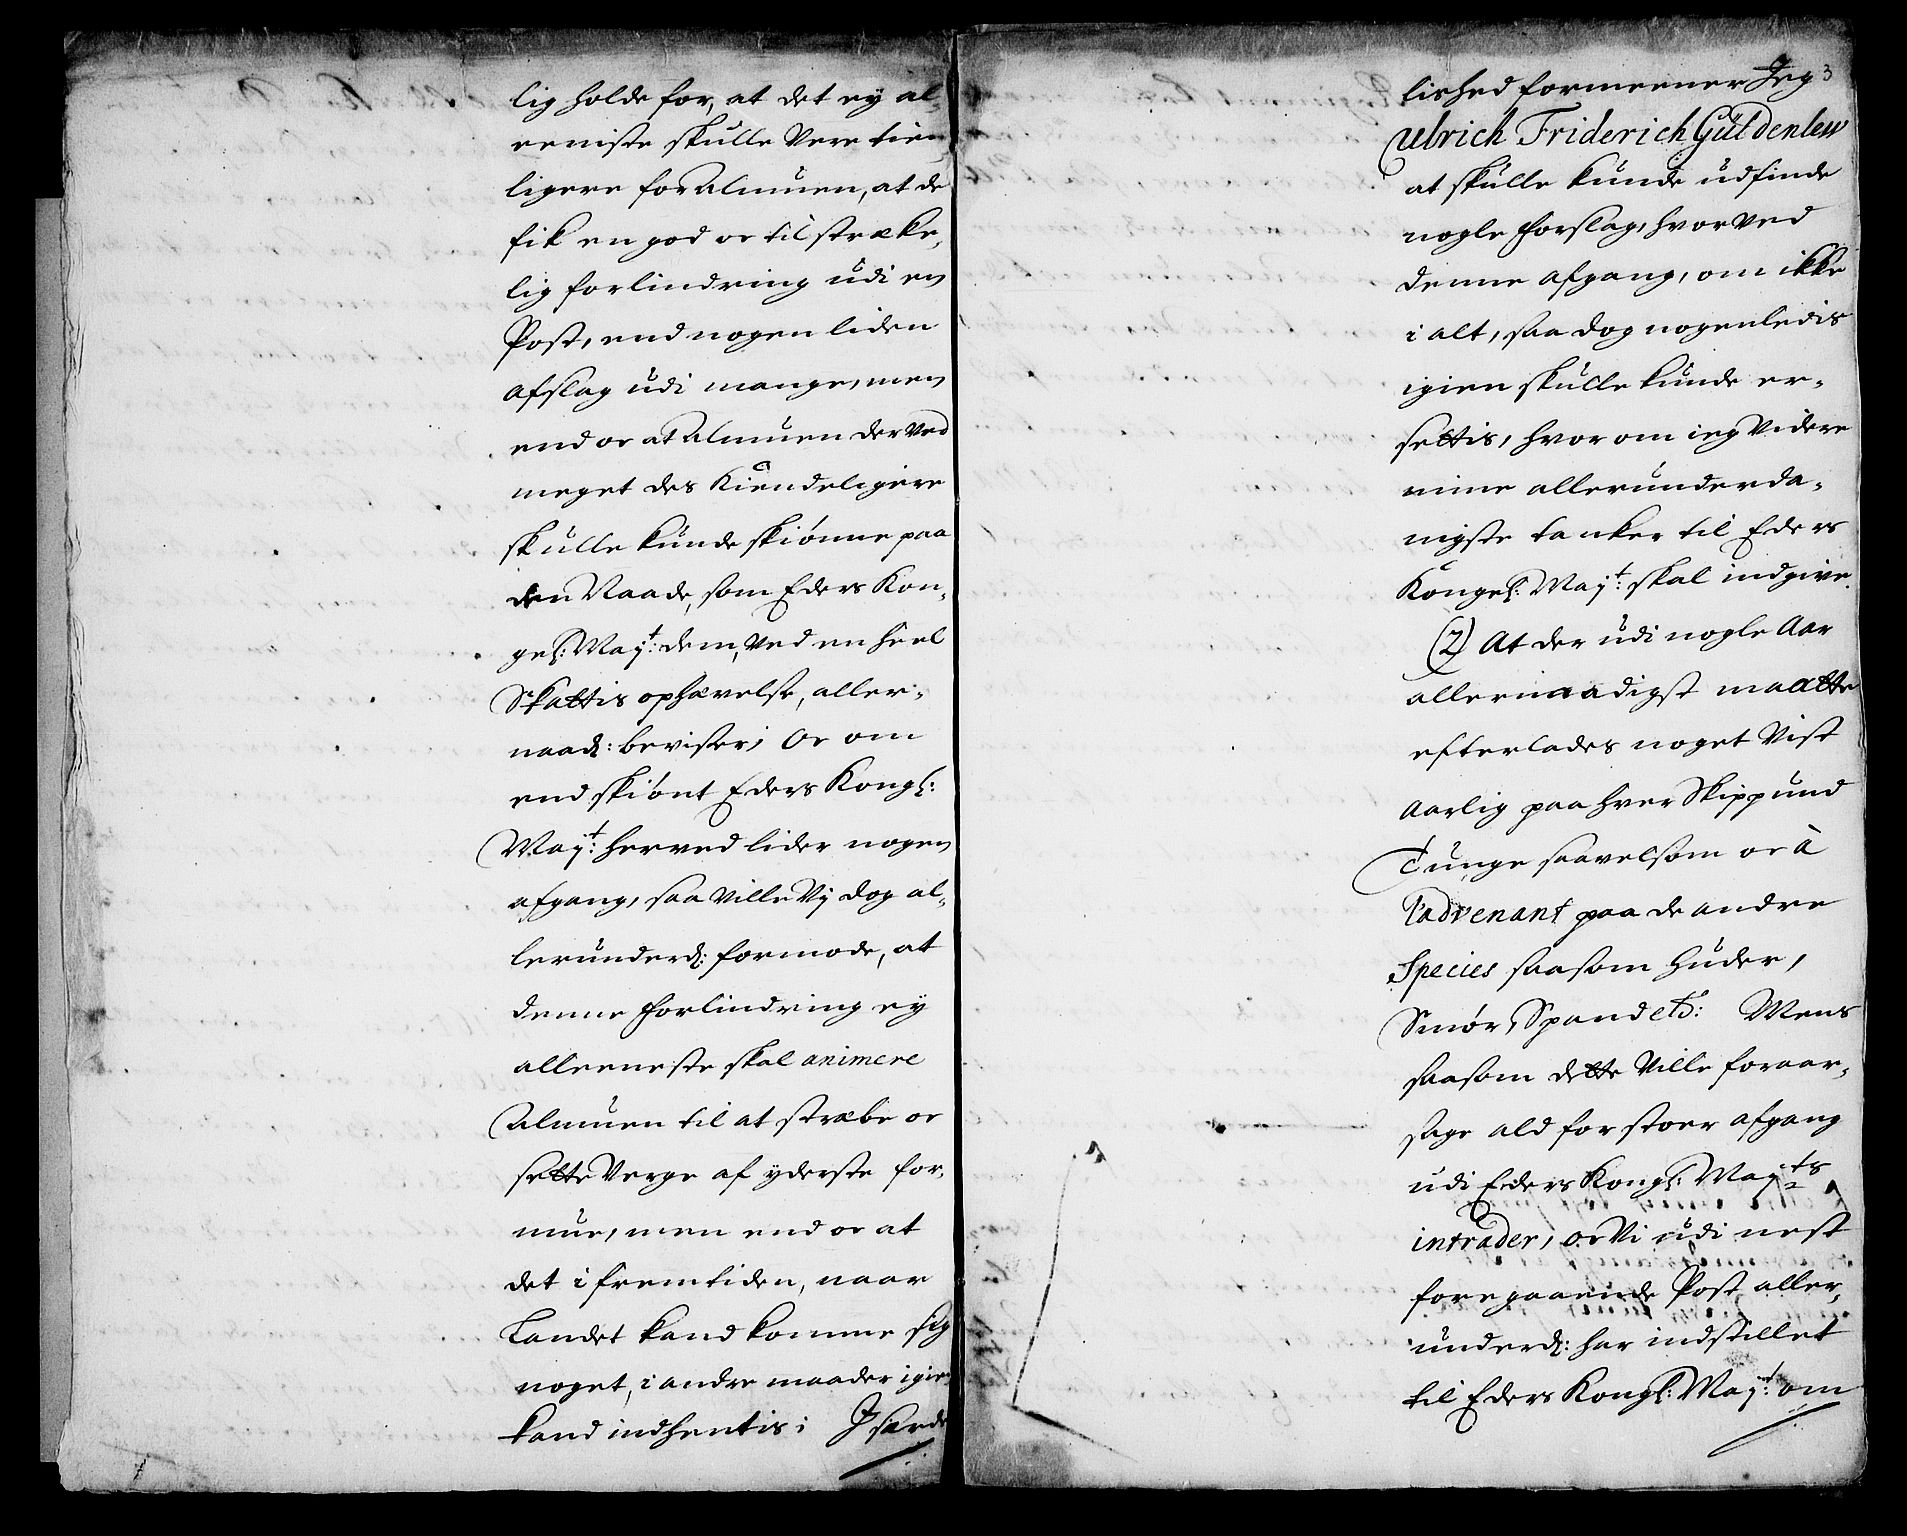 lig holde for, at det ey al-
eeniste skulle Vere tien-
ligere for Almuen, at de
fik en god oc tilstrække-
lig forlindring udi en
Post, end nogen liden
afslag udi mange, men
end oc at Almuen der ved
meget des Kiendeligere
skulle kunde skiønne paa
den Naade, som Eders Kon-
gel: Mayt: dem, ved en heel
Skattis ophævelse, aller-
naad: beviser; Oc om
end skiønt Eders Kongl:
Mayt: herved lider nogen
afgang, saa ville Vy dog al-
lerunderd: formode, at
denne forlindring ey
alleeneste skal animere
Almuen til at stræbe oc
sette Verge af yderste for-
mue, men end oc at
det i fremtiden, naar
Landet kand komme sig
noget, i andre maader igien
kand indhentis; Isærde
lished formeener Jeg 3
Ulrich Friderich Güldenlew
at skulle kunde udfinde
nogle forslag, hvorved
denne afgang, om ikke
i alt, saa dog nogenledis
igien skulle kunde er-
settis, hvor om ieg Videre
mine allerunderda-
nigste tanker til Eders
Kongel: Mayt: skal indgive.
(2) At der udi nogle Aar
allernaadigst maatte
efterlades noget Vist
Aarlig paa hver Skippund
Tunge saavelsom oc à
l'advenant paa de andre
Species saasom Huder,
Smør, Spand etc: Mens
saasom dette Ville foraar-
sage ald for stoer afgang
udi Eders Kongl: Mayts
intrader, oc Vi udi nest
foregaaende Post aller-
underd: har indstillet
til Eders Kongl: Mayt: om